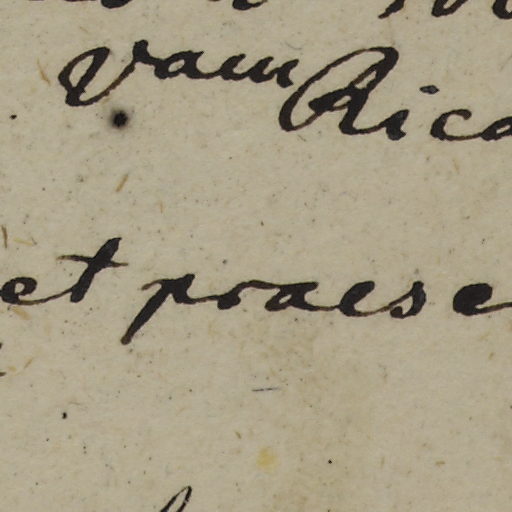 vam Rica
et praese